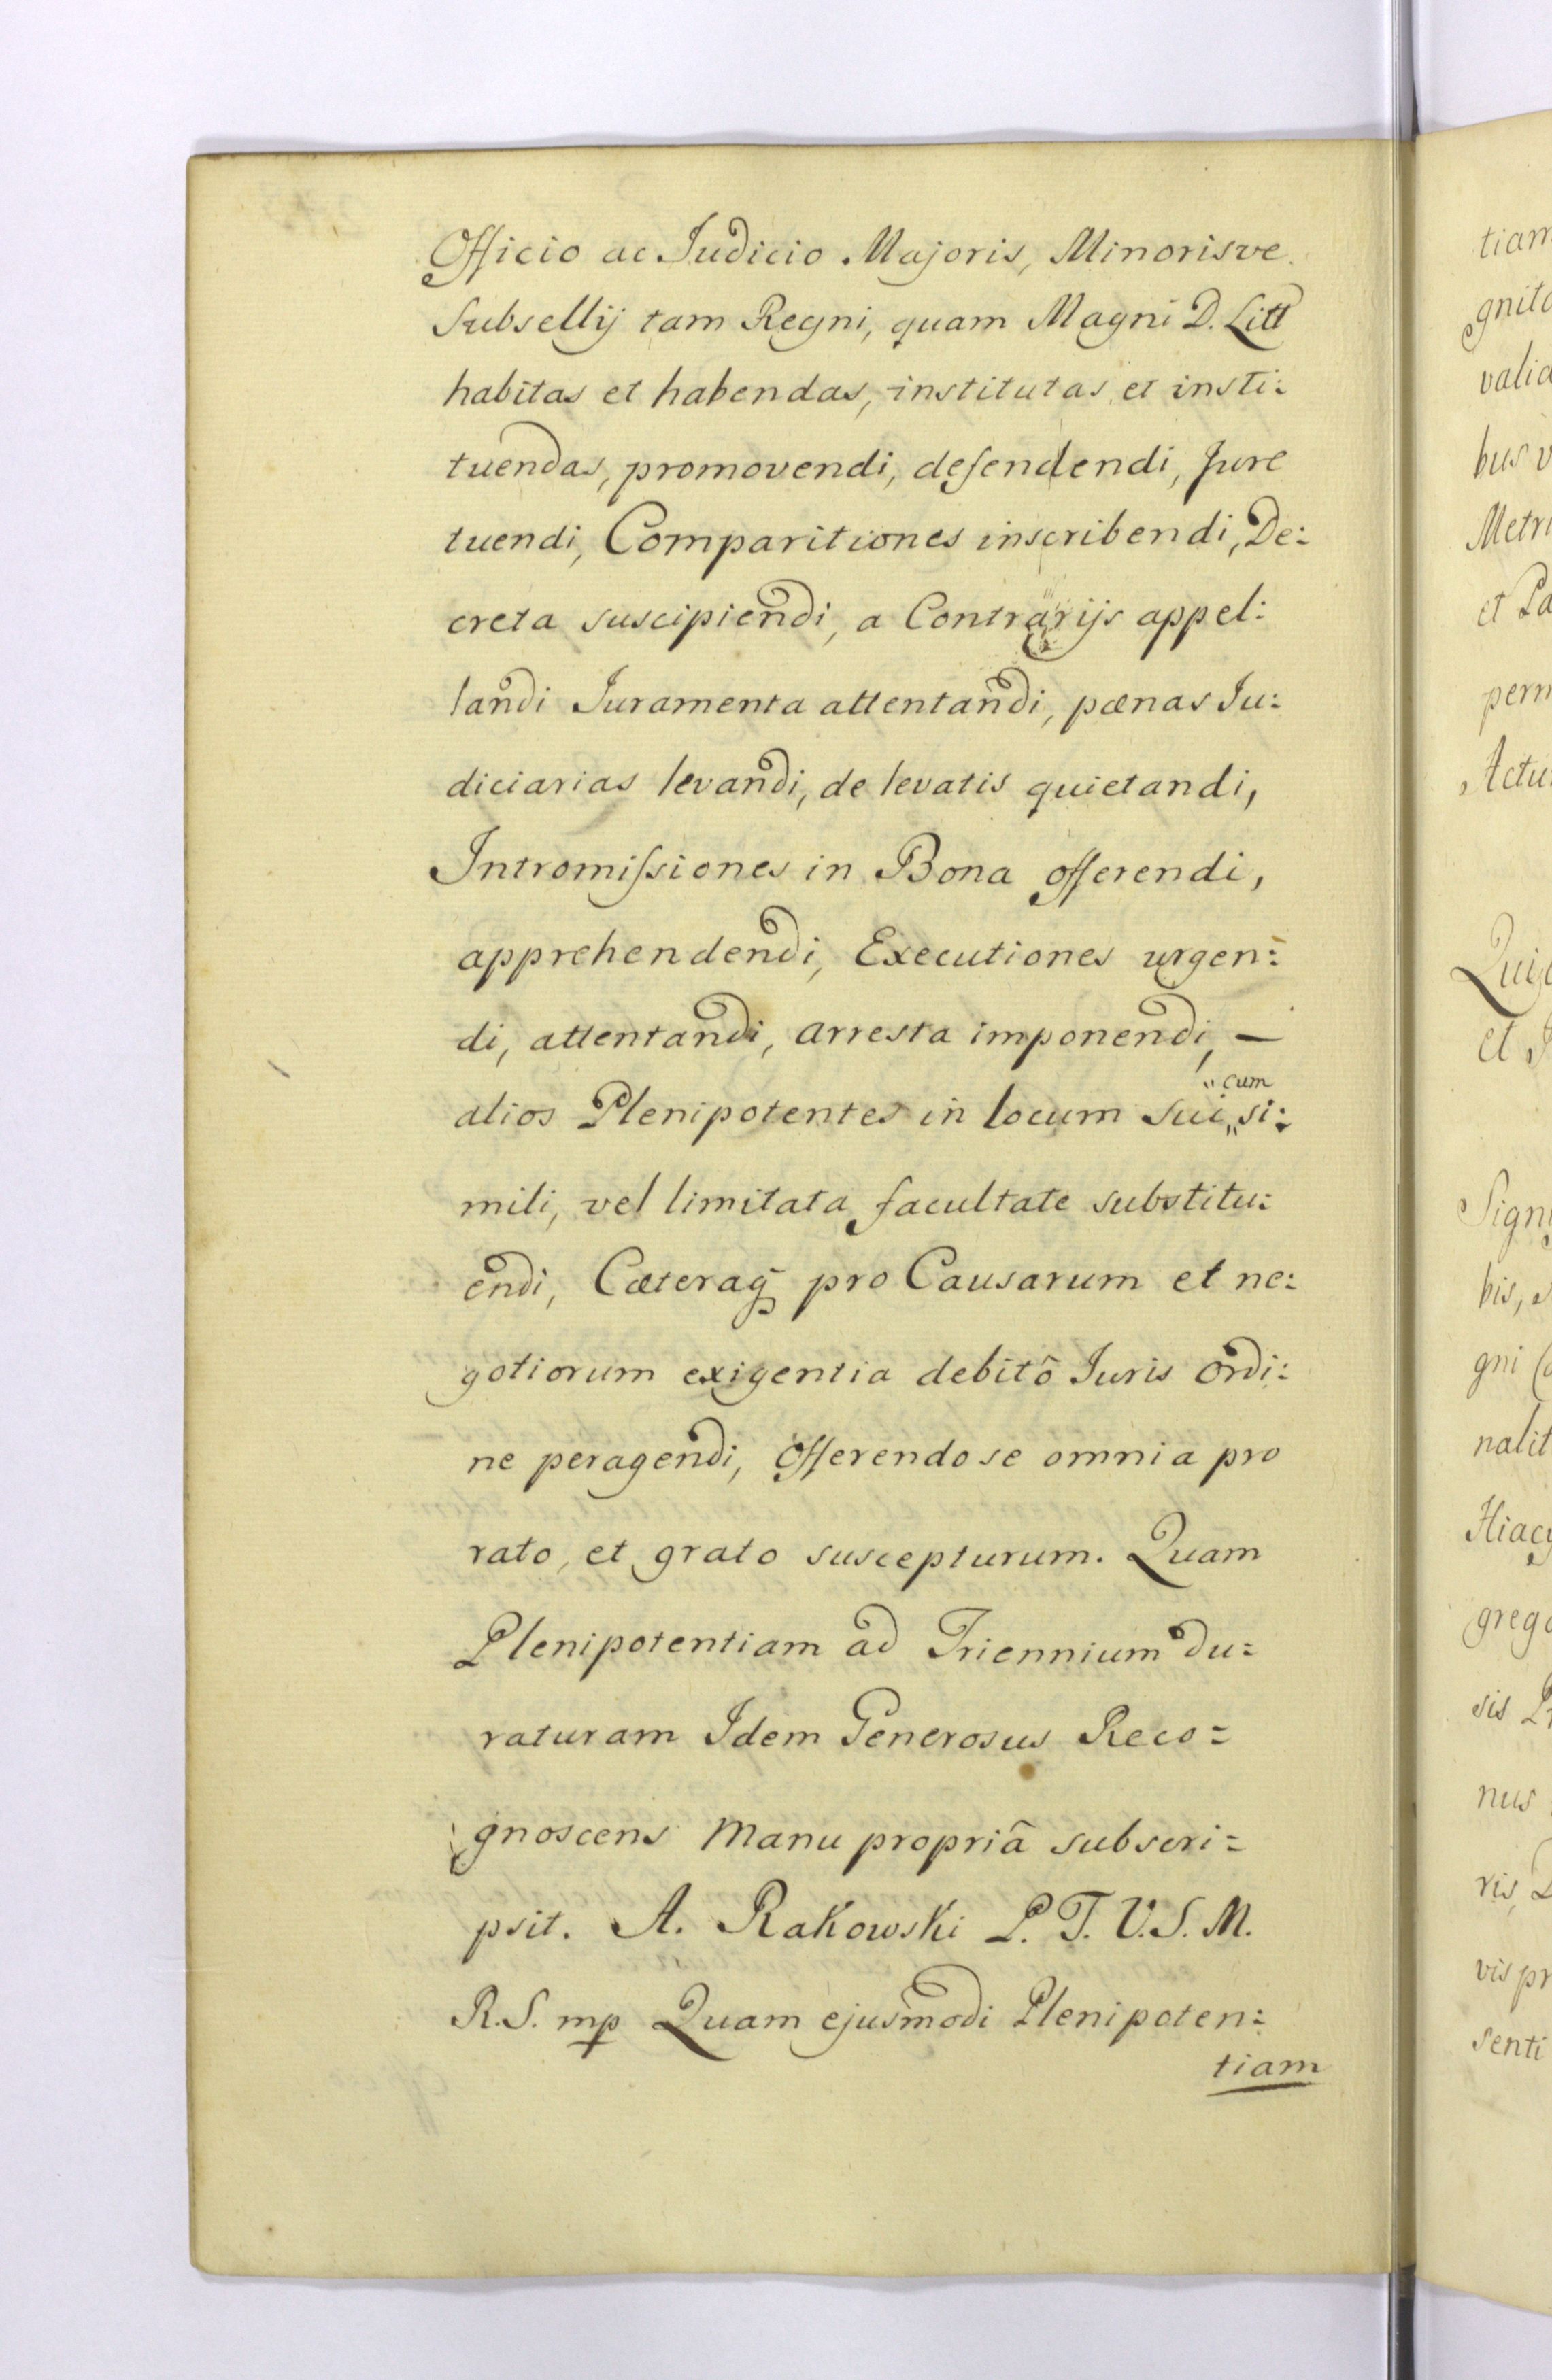 Officio ac Judicio Majoris, Minorisve
Subsellij tam Regni, quam Magni D. Litt
habitas et habendas, institutas et insti:
tuendas, promovendi, defendendi, Jure
tuendi, Comparitiones inscribendi, De:
creta suscipiendi, a Contrarijs appel:
landi Juramenta attentandi, pœnas Ju:
diciarias levandi, de levatis quietandi,
Intromiſsiones in Bona offerendi,
apprehendendi, Executiones urgen:
di, attentandi, arresta imponendi, —
cum
alios Plenipotentes in locum sui si:
mili, vel limitata facultate substitu:
endi, Cæteraq pro Causarum et ne:
gotiorum exigentia debitô Juris ordi:
ne peragendi, offerendo se omnia pro
rato, et grato suscepturum. Quam
Plenipotentiam ad Triennium du:
raturam Idem Generosus Reco:
gnoscens Manu propriâ subscri:
psit. A. Rakowski P. T. V. S. M.
R. S. mp Quam ejusmodi Plenipoten:
tiam
tiam
gnit
valid
bus v
Metri
et Pa
perm
Actu
et
Sign
bis,
gni
nalit
Hiacy
greg
sis
nus
ris,
vis pr
senti